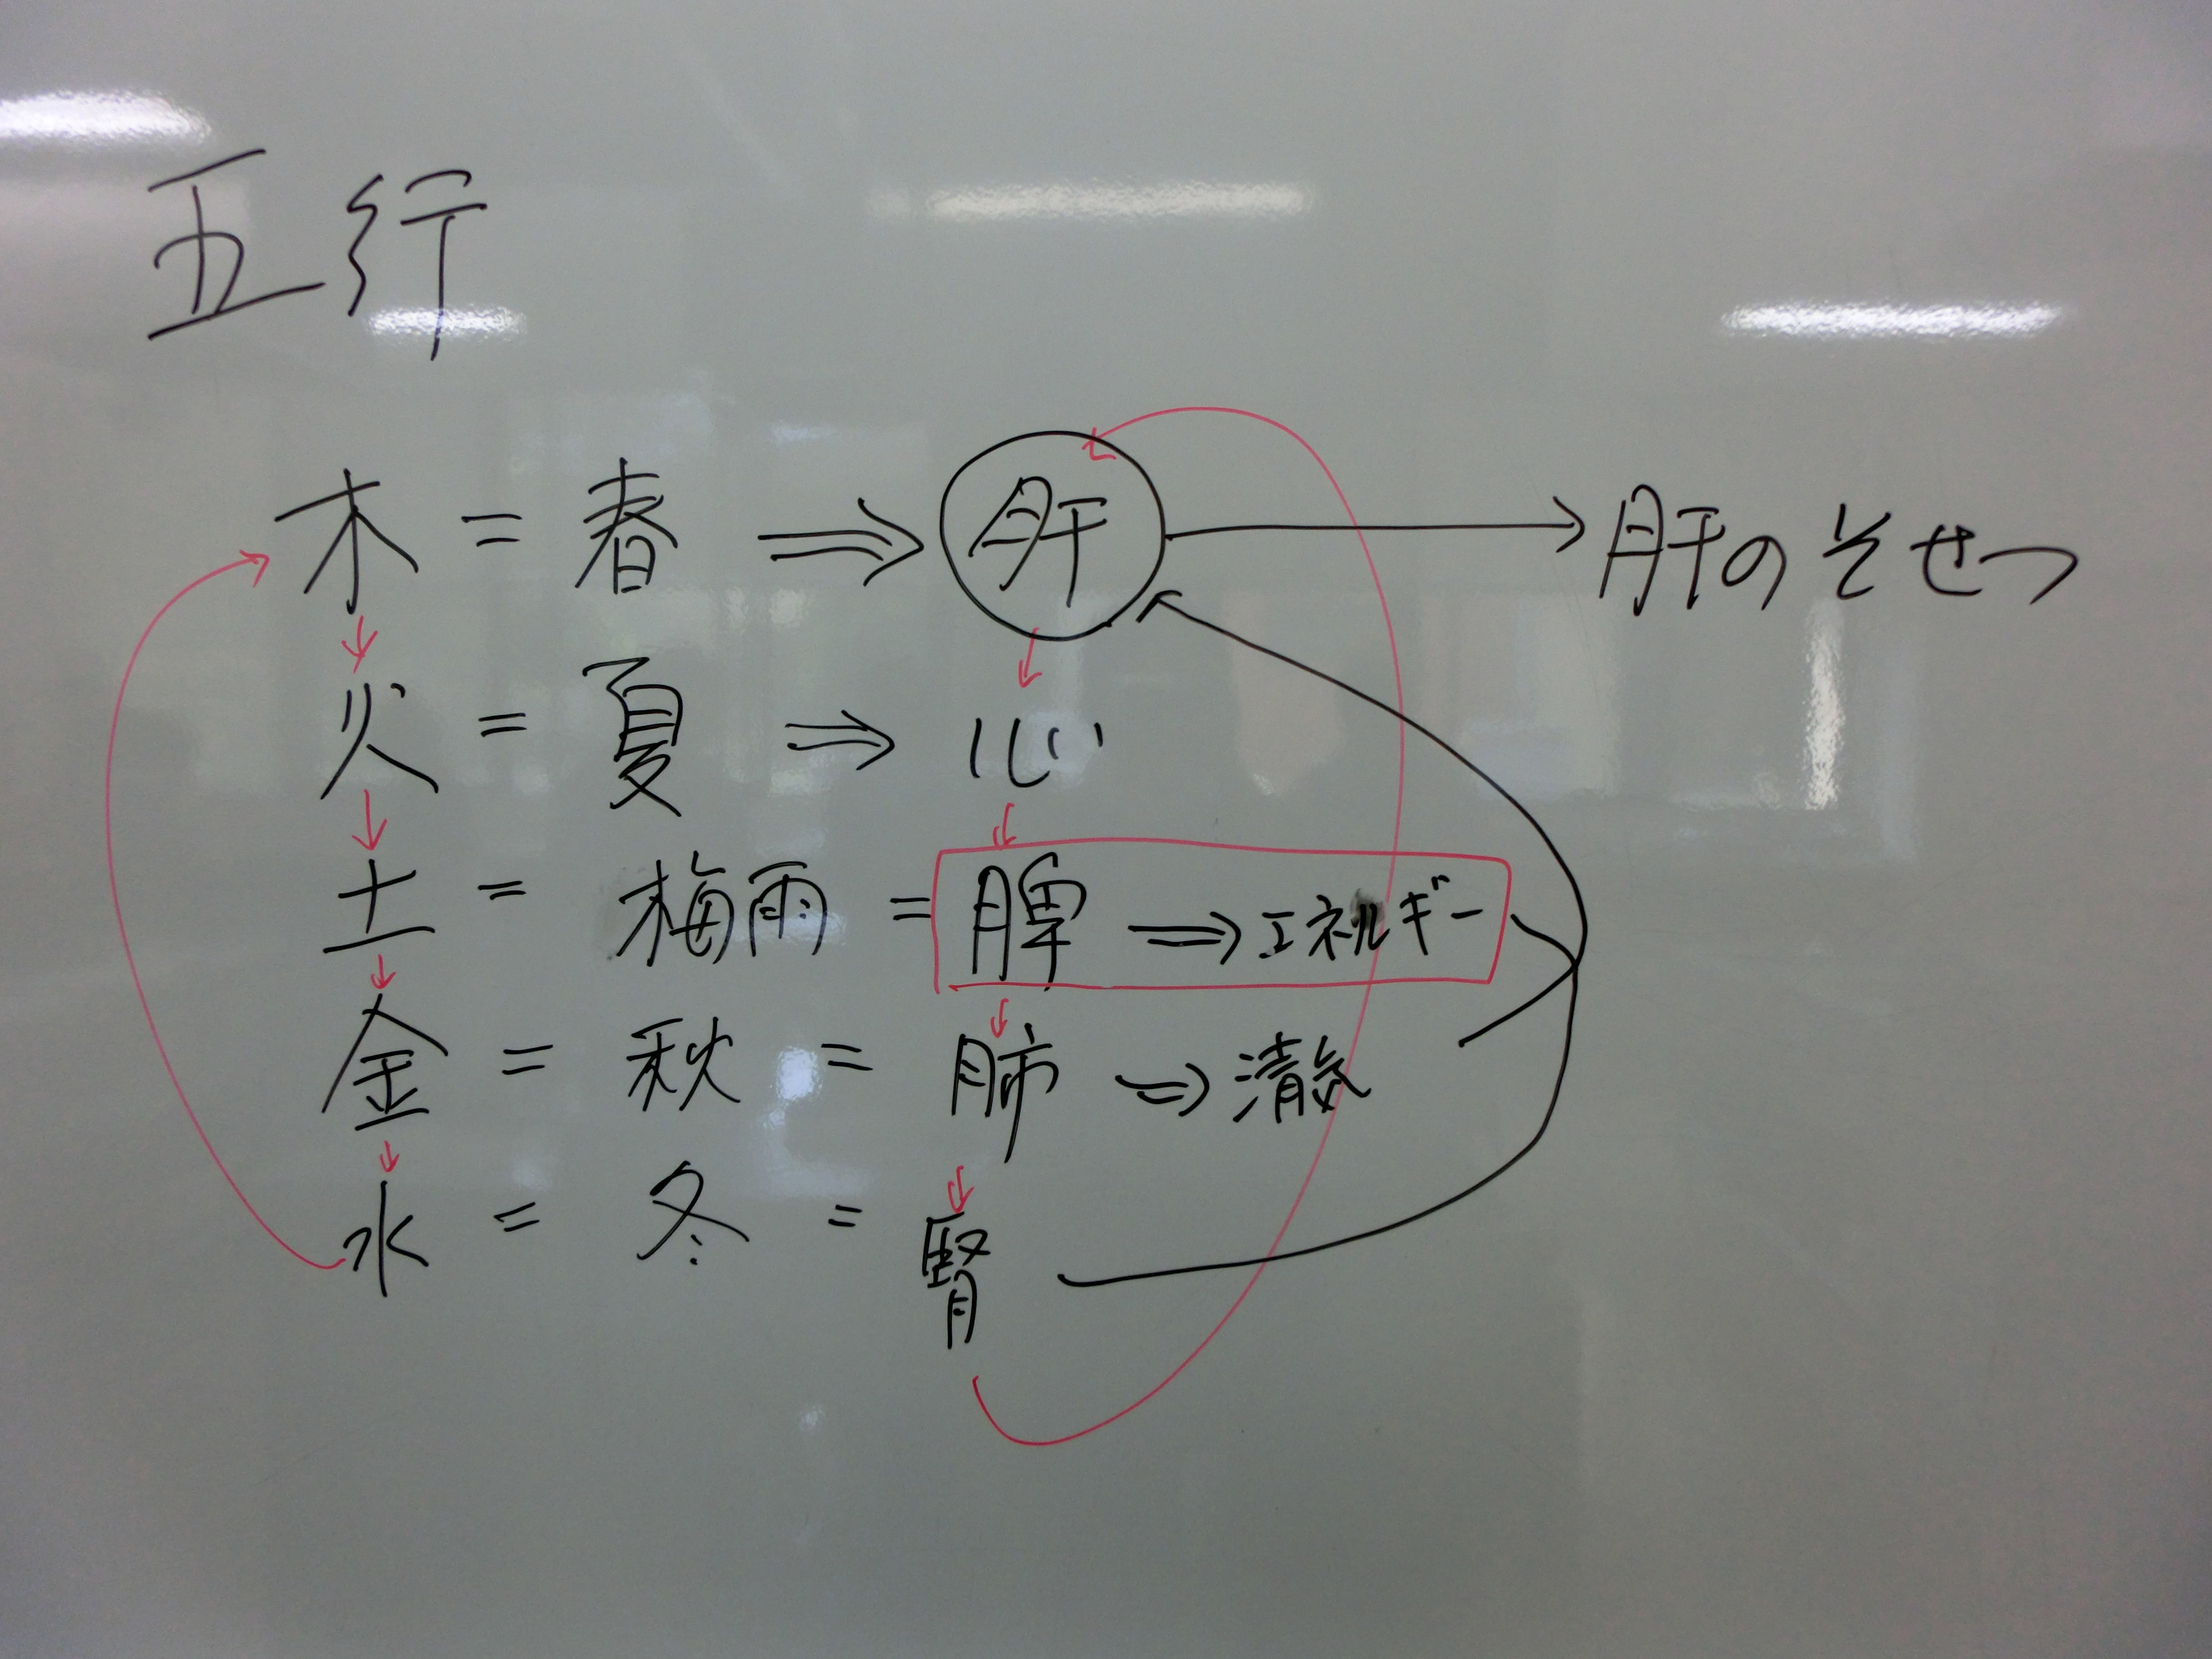 五行
木 = 春 ⇒ 肝 → 肝のそせつ
火 = 夏 ⇒ 心
土 = 梅雨 = 脾 ⇒ エネルギー
金 = 秋 = 肺 ⇒ 清気
水 = 冬 = 腎